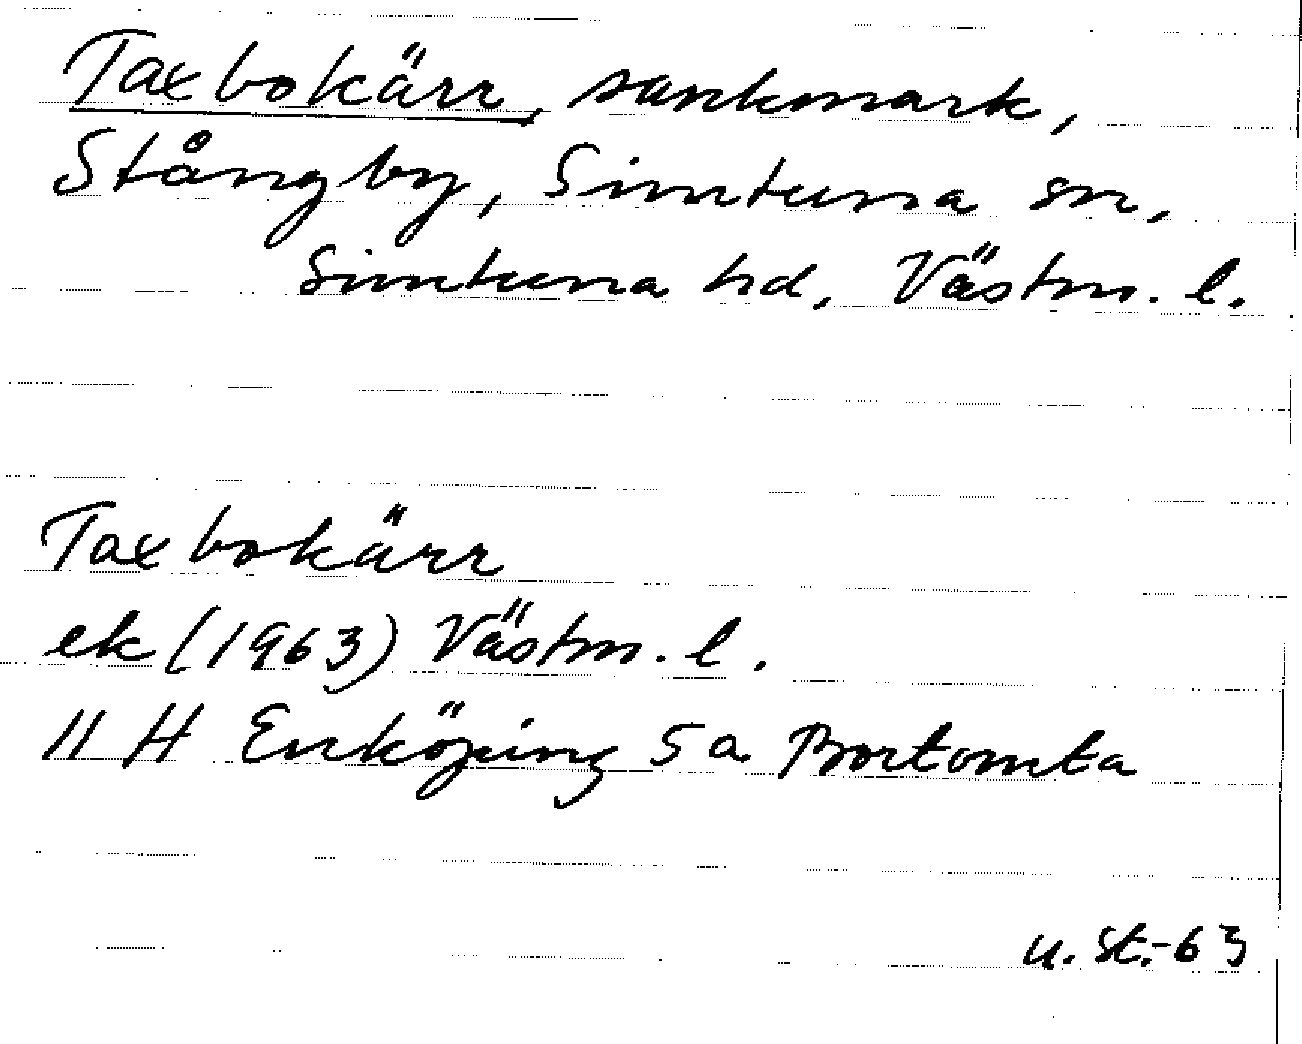 Taxbokärr, sankmark,
Stångby, Simtuna sn,
Simtuna hd, Västm. l.
Taxbokärr
ek (1963) Västm. l.
11 H Enköping 5 a Bortomta
U. St.-63